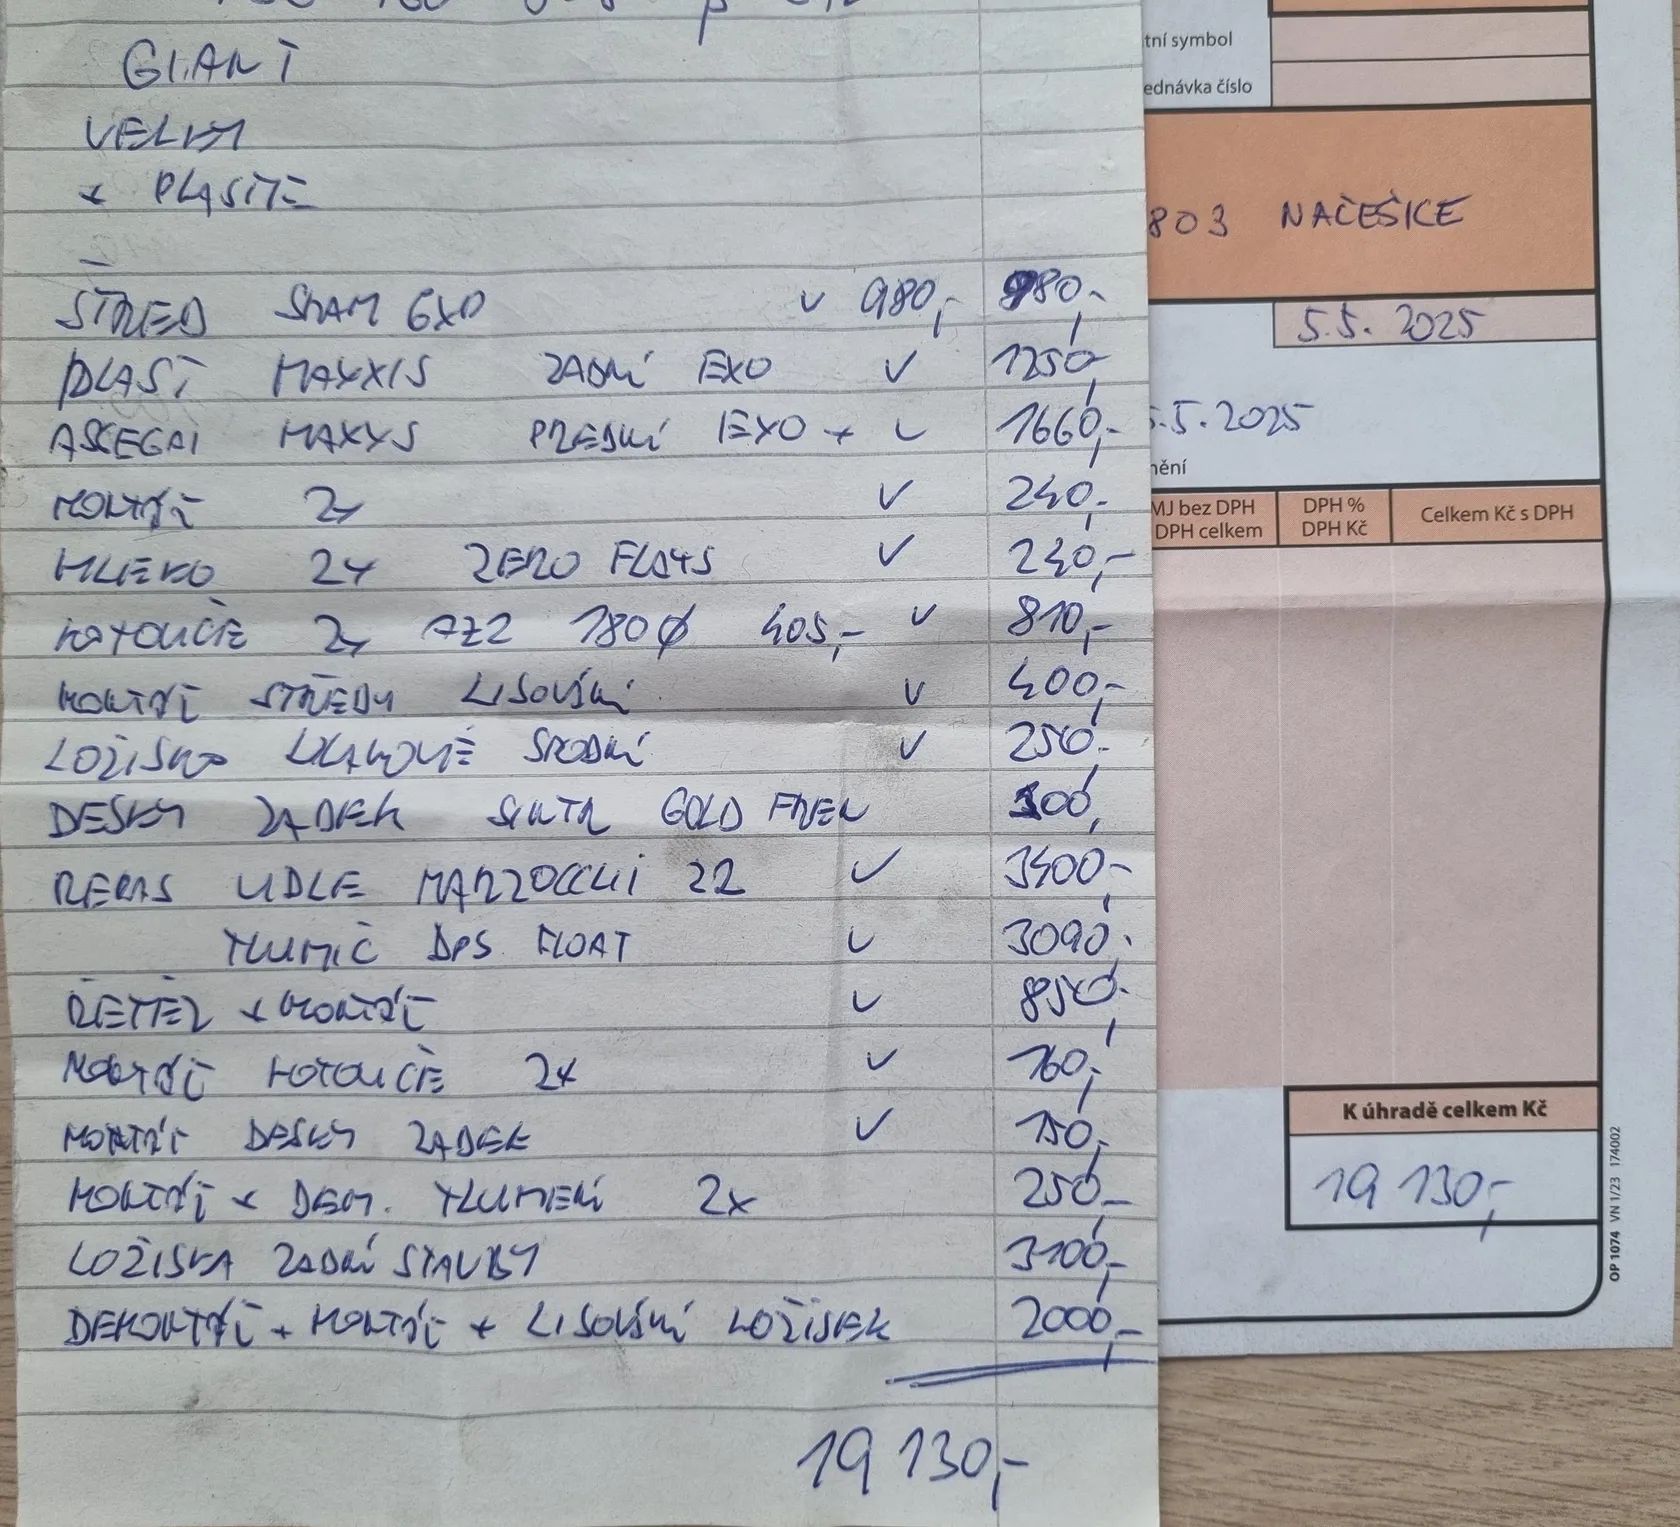 GIANT
VELKÝ
+ PLÁŠTĚ
STŘED SRAM GXP 980,- 980,-
PLÁŠŤ MAXXIS ZADNÍ EXO 1250,-
ASSEGAI MAXXIS PŘEDNÍ EXO + 1660,-
MONTÁŽ 2x 240,-
MLÉKO 2x ZERO FLATS 240,-
KOTOUČE 2x AZ2 180Ø 405,- 810,-
MONTÁŽ STŘEDU LISOVÁNÍ 400,-
LOŽISKO HLAVOVÉ SPODNÍ 250,-
DESKY ZADEK SINTR GOLD FREN 300,-
REPAS VIDLE MARZOCCHI Z2 3400,-
TLUMIČ DPS FLOAT 3090,-
ŘETĚZ + MONTÁŽ 850,-
MONTÁŽ KOTOUČE 2x 160,-
MONTÁŽ DESKY ZADEK 150,-
MONTÁŽ + DEM. TLUMENÍ 2x 250,-
LOŽISKA ZADNÍ STAVBY 3100,-
DEMONTÁŽ + MONTÁŽ + LISOVÁNÍ LOŽISEK 2000,-
19 130,-
tní symbol
ednávka číslo
803 NAČEŠICE
5.5. 2025
5.5.2025
nění
MJ bez DPH DPH % Celkem Kč s DPH
DPH celkem DPH Kč
K úhradě celkem Kč
19 130,-
OP 1074 VN 1/23 174002